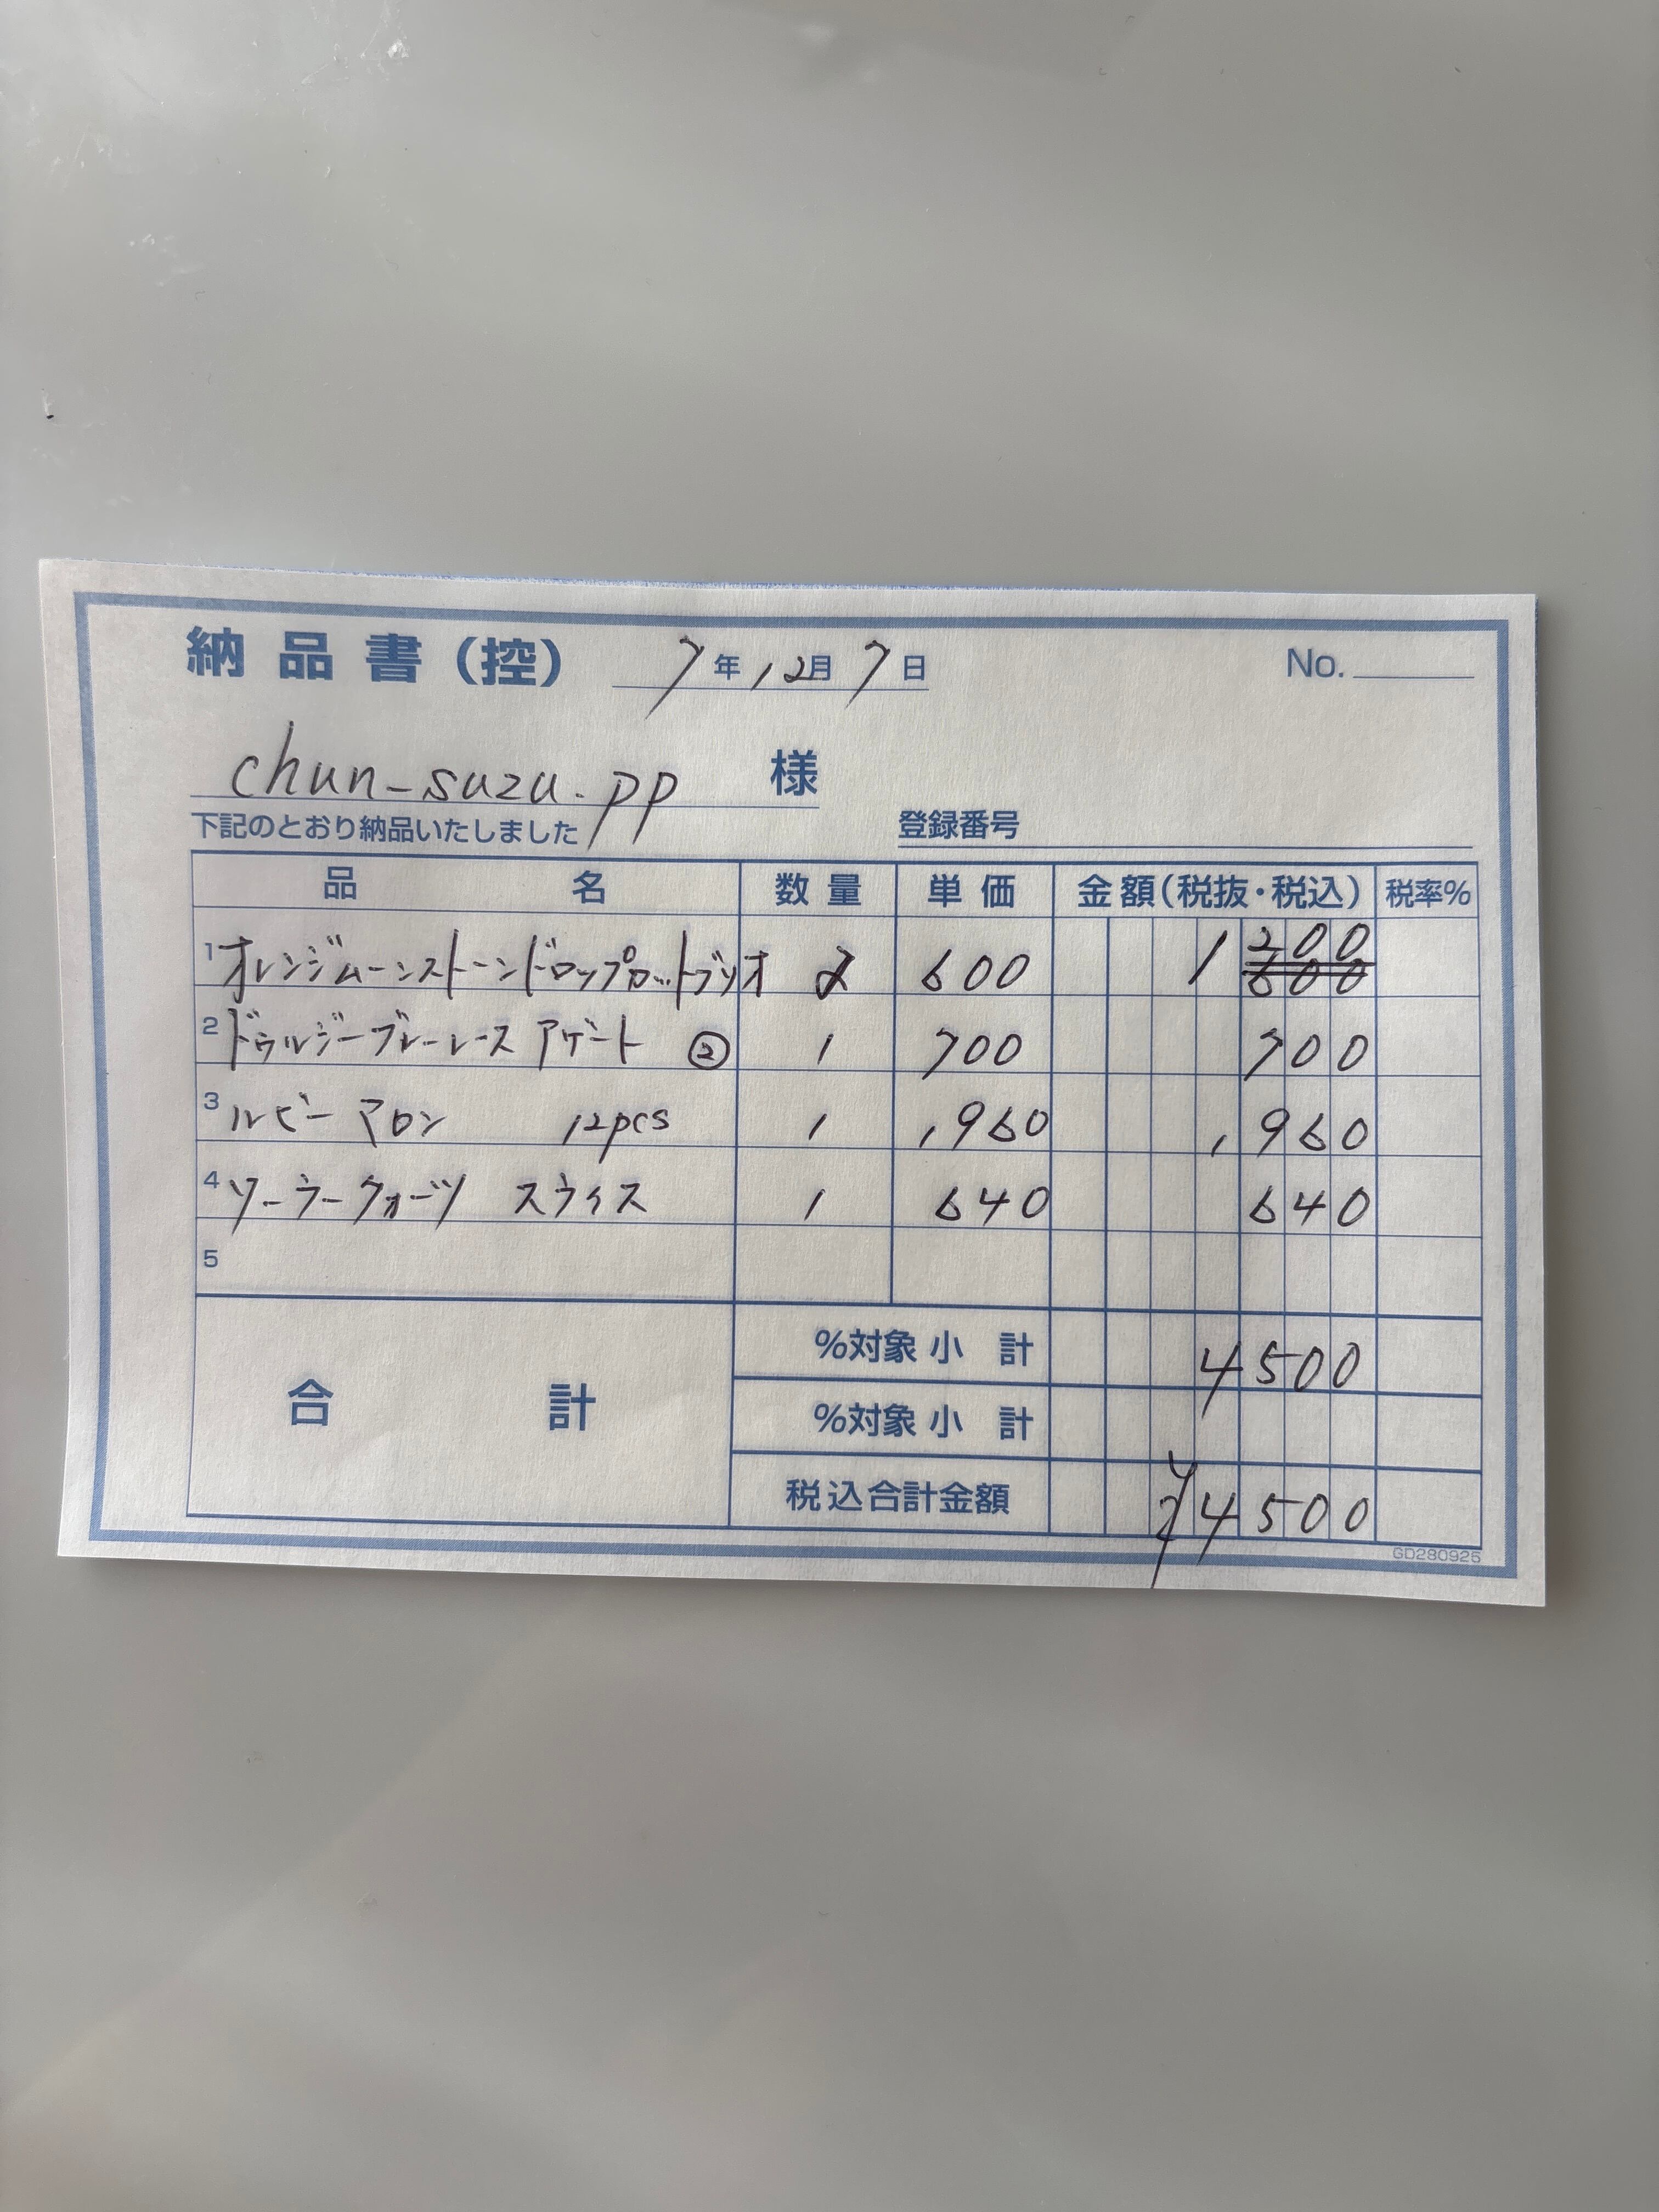 納品書（控） 7年12月7日 No.
chun-suzu.pp 様
下記のとおり納品いたしました 登録番号
品名 数量 単価 金額（税抜・税込） 税率%
1 オレンジムーンストーンドロップカットブリオ 2 600 1200 600
2 ドゥルジーブルーレース アゲート ② 1 700 700
3 ルビー マロン 12pcs 1 1,960 1,960
4 ソーラークォーツ スライス 1 640 640
5
%対象小計 4500
合計 %対象小計
税込合計金額 ¥4500
GD280925